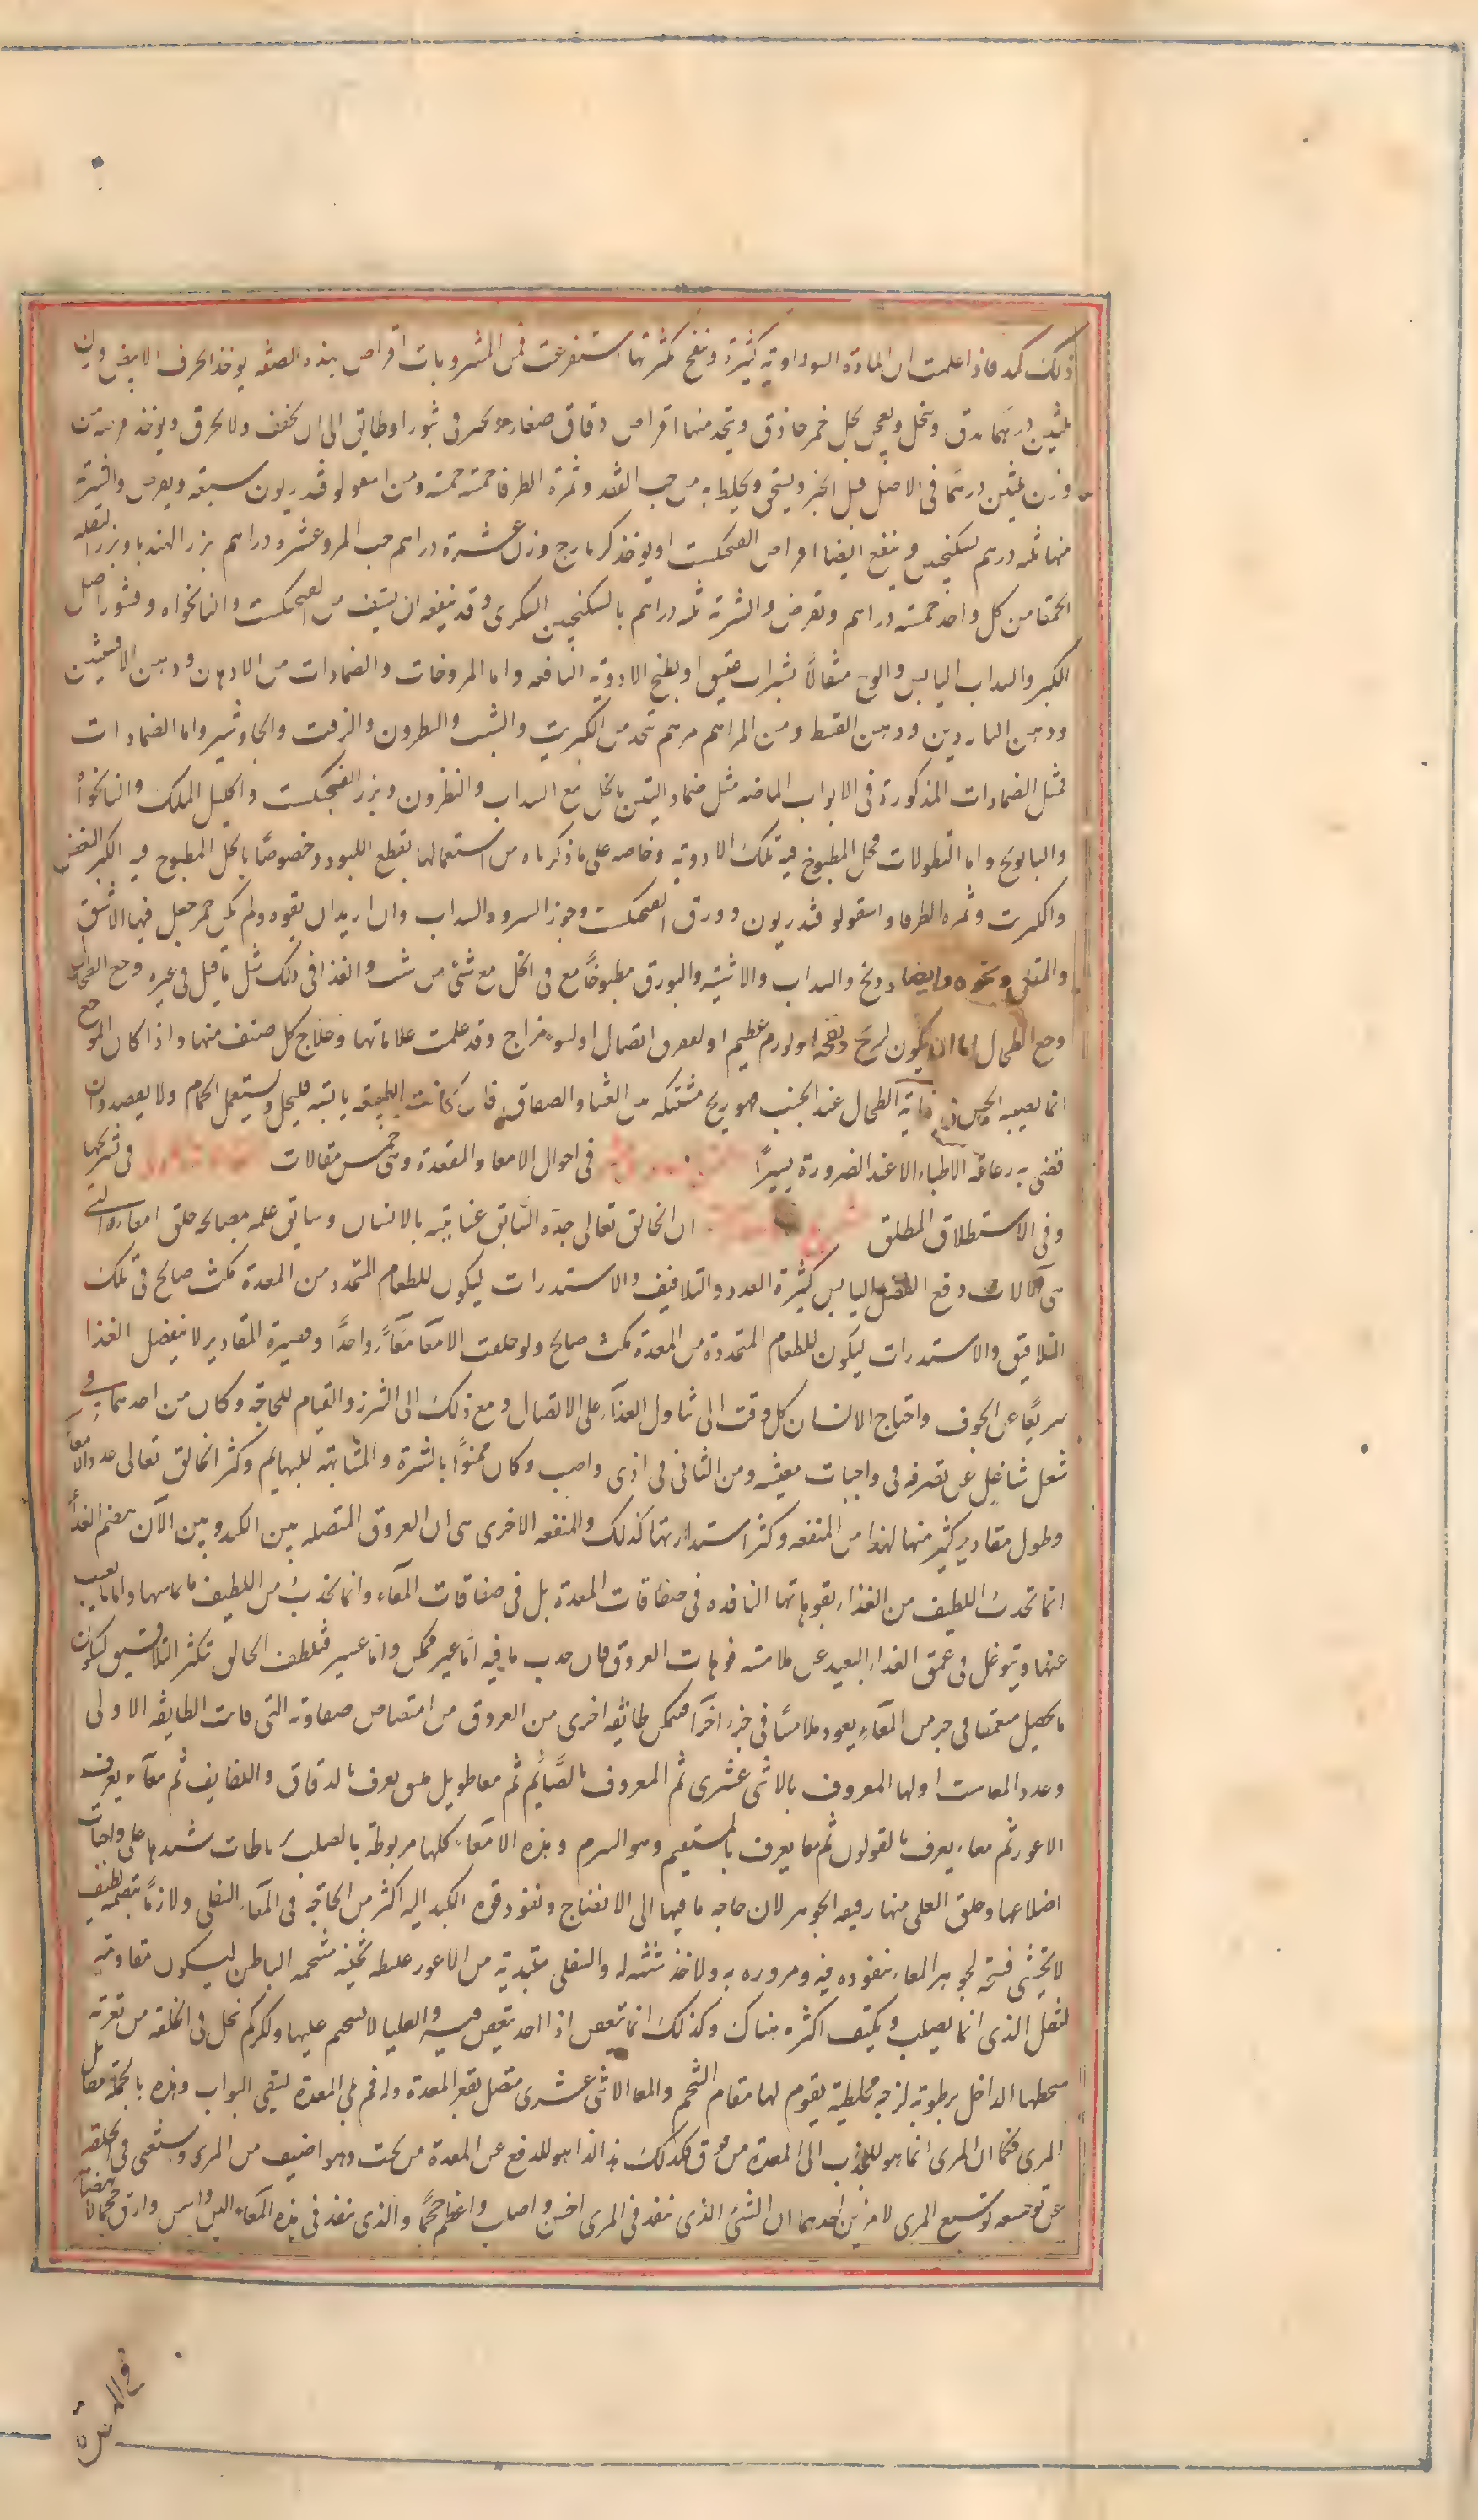 ذلك كمد فاذا علمت ان المادة السوداوية كثيرة ونفخ كثرتها استفرغت فمن المشروبات اقراص بهذه الصفه يوخذ الحرف الابيض وزن
ثلثين درهما يدق وينخل ويعجن بخل خمر حاذق ويتخذ منها اقراص دقاق صغار فى تنور او طابق الى ان يجفف ولا يحرق ويوخذ
وزن ثلثين درهما فى الاصل قبل الخبز ويسحق ويخلط به من حب الفقد وثمرة الطرفا خمسة خمسة ومن اسقولوقندريون سبعة ويقرص والشربة
منها ثلثه درهم بسكنجبين وينفع ايضا اقراص الفنجنكشت او يوخذ كزمازج وزن عشرة دراهم حب المرو عشره دراهم بزر الهندبا وبزر البقله
الحمقا من كل واحد خمسة دراهم ويقرض والشربة ثلثه دراهم بالسكنجبين السكرى وقد ينفعه ان يستف من الفنجنكشت والنانخواه وقشور اصل
الكبر والسداب اليابس والوج مثقالاً بشراب عتيق او بطبخ الادويه النافعه واما المروخات والضمادات من الادهان ودهن الافسنتين
ودهن الناردين ودهن القسط ومن المراهم مرهم يتخذ من الكبريت والشب والنطرون والزفت والجاوشير واما الضمادات
فمثل الضمادات المذكورة فى الابواب الماضه مثل ضماد التين بالخل مع السداب والنطرون وبزر الفنجنكشت واكليل الملك والنانخواه
والبابونج واما النطولات فخل المطبوخ فيه تلك الادويه وخاصه على ما ذكرناه من استعمالها بقطع اللبود وخصوصًا بالخل المطبوخ فيه الكبر الغض
والكبريت وثمره الطرفا واسقولوقندريون وورق الفنجنكشت وجوز السرو والسداب وان اريد ان يقوه ولم يكن حمى جعل فيها الاشق
والمقل ونحوه وايضا والسداب والاشنة والبورق مطبوخاً مع فى الخل مع شئ من شب والغذا فى ذلك مثل ما قيل فى غيره وجع الطحال
وجع الطحال اما ان يكون لريح ونفخه او لورم عظيم او لتفرق اتصال او لسوء مزاج وقد علمت علاماتها وعلاج كل صنف منها واذا كان الوجع
انما يصيبه الحس فى ناحية الطحال عند الجنب فهو ريح مشتبكه بين الغشا والصفاق فان كانت الطبيعه يابسة فليحل ويستعمل الحمام ولا يفصد وان
قضى به رعاعة الاطباء الا عند الضرورة يسيرًا فى احوال الامعا والمقعدة وهى خمس مقالات فى تشريحها
وفى الاستطلاق المطلق ان الخالق تعالى جده السابق عنايته بالانسان وسابق علمه بمصالحه خلق امعاءه التى
هى آلات دفع الفضل اليابس كثيرة العدد والتلافيف والاستدرات ليكون للطعام المتحدر من المعدة مكث صالح فى تلك
التلافيف والاستدرات ليكون للطعام المتحدرة من المعدة مكث صالح ولو خلقت الامعا معاًء واحدًا وقصيرة المقادير لانفصل الغذا
سريعًا عن الجوف واحتاج الانسان كل وقت الى تناول الغذآء على الاتصال ومع ذلك الى التبرز والقيام للحاجة وكان من احدهما فى
شغل شاغل عن تصرفه فى واجبات معيشه ومن الثانى فى اذى واصب وكان ممنوًا بالشره والمشابهة للبهايم وكثر الخالق تعالى عدد الامعآ
وطول مقادير كثير منها لهذا من المنفعه وكثر استدارتها كذلك والمنفعه الاخرى هى ان العروق المتصله بين الكبد وبين آلات هضم الغذآ
انما تجذب اللطيف من الغذاء بفوهاتها النافذه فى صفاقات المعدة بل فى صفاقات المعآء وانما يجذب من اللطيف ما يماسها واما ما يغيب
عنها ويتوغل فى عمق الغذاء البعيد عن ملامسه فوهات العروق فان جذب ما فيه اما غير ممكن واما عسير فلطف الخالق بتكثير التلافيف ليكون
ما يحصل متعمقا فى جزء من المعآء يعود ملامسًا فى جزء آخر فيتمكن طائفه اخرى من العروق من امتصاص صفاوته التى فاتت الطايفه الاولى
وعدد المعا ست اولها المعروف بالاثنى عشرى ثم المعروف بالصَّايم ثم معا طويل ملتف يعرف بالدقاق واللفايف ثم معآء يعرف
الاعور ثم معاء يعرف بالقولون ثم معا يعرف بالمستقيم وهو السرم وهذه الامعآء كلها مربوطة بالصلب برباطات تشدها على واجبات
اضلاعها وخلق العلى منها رقيقه الجوهر لان حاجه ما فيها الى الانضاج ونفوذ قوه الكبد اليه اكثر من الحاجة فى المعآء السفلى ولان ما يتضمنه لطيف
لا يخشى فسخه لجوهر المعاء بنفوذه فيه ومروره به ولاخذ شه له والسفلى مبتدية من الاعور غليظه ثخينه مشحمه الباطن ليكون مقاومه
لثفل الذى انما يصلب ويكثف اكثره هناك وكذلك انما يتعفن اذا اخذ يتعفن فيه والعليا لا شحم عليها ولكن لم يخل فى الخلقه من تعريه
سطحها الداخل برطوبة لزجه مخاطية يقوم لها مقام الشحم والمعا الاثنى عشرى متصل بقعر المعدة وله فم يلى المعدة يسمى البواب وهذه بالجملة مقابل
المرى فكما ان المرى انما هو للجذب الى المعدة من فوق فكذلك هذا انما هو للدفع عن المعدة من تحت وهو اضيق من المرى واستغنى فى الخلقه
عن توسيعه توسيع المرى لامرين احدهما ان الشئ الذى ينفذ فى المرى اخشن واصلب واعظم حجمًا والذى ينفذ فى هذه المعآء الين واسلس وارق حجما لانهضامه